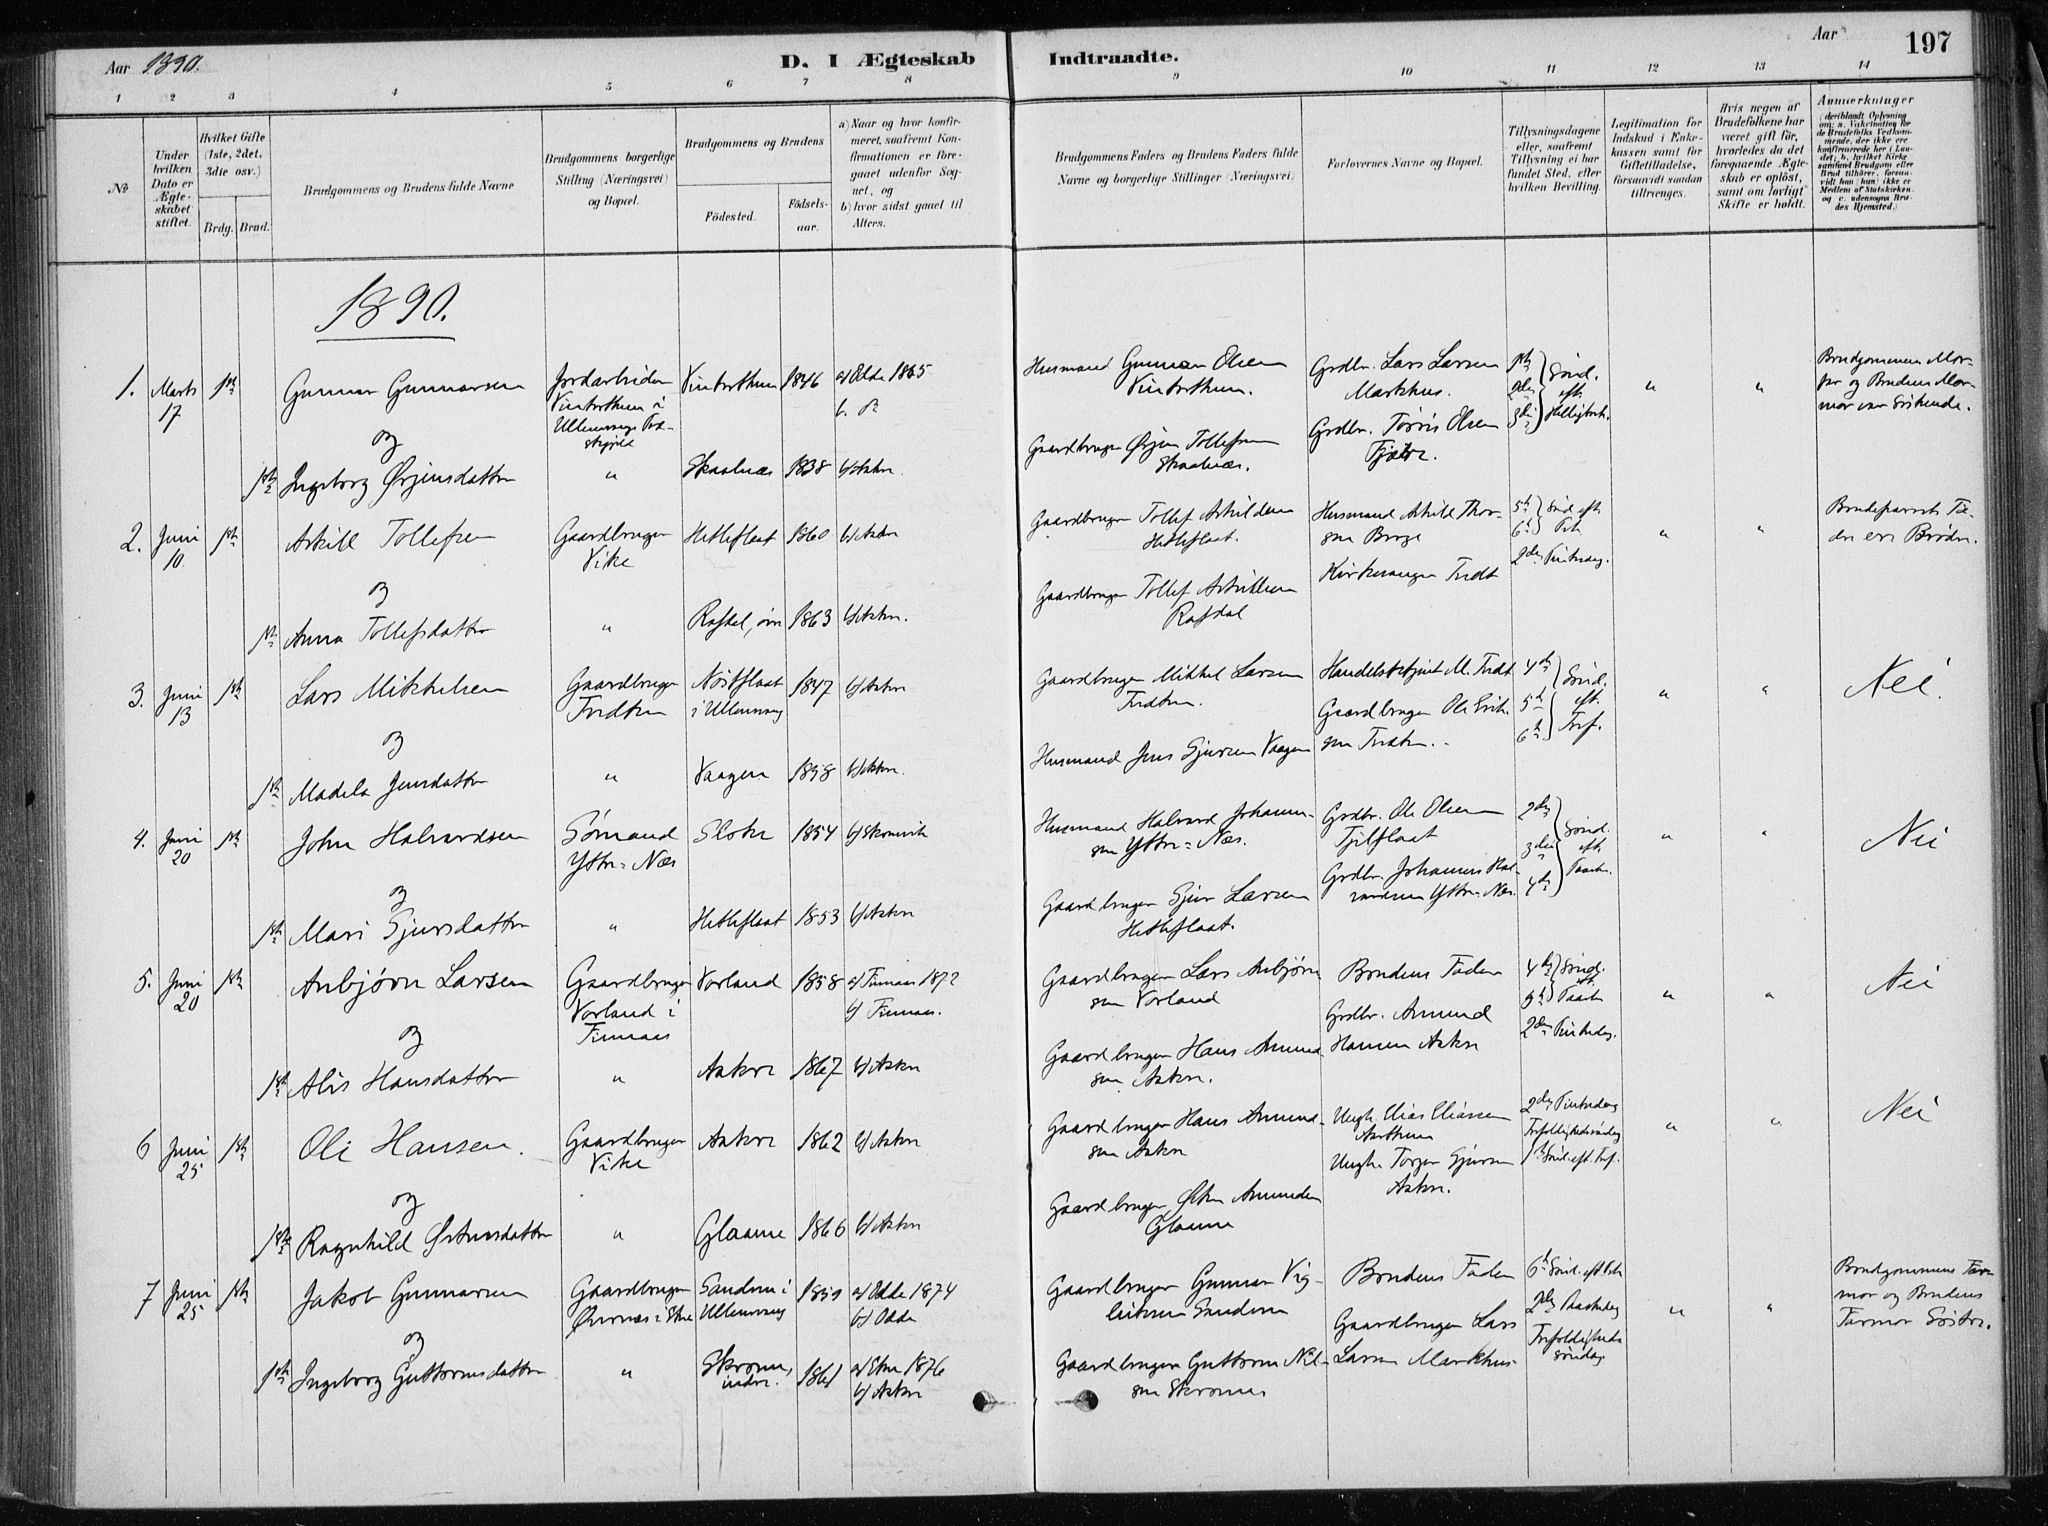 Aar 1890.
D. I Ægteskab Indtraadte.
Aar
197
1 2 3 4 5 6 7 8 9 10 11 12 13 14
No
Under hvilken Dato er Ægteskabet stiftet.
Hvilket Gifte (1ste, 2det, 3die osv.)
Brdg. Brud.
Brudgommens og Brudens fulde Navne
Brudgommens borgerlige Stilling (Næringsvei) og Bopæl.
Brudgommens og Brudens
Födested.
Födselsaar.
a) Naar og hvor konfirmeret, saafremt Konfirmationen er foregaaet udenfor Sognet, og
b) hvor sidst gaaet til Alters.
Brudgommens Faders og Brudens Faders fulde Navne og borgerlige Stillinger (Næringsvei).
Forlovernes Navne og Bopæl.
Tillysningsdagene eller, saafremt Tillysning ei har fundet Sted, efter hvilken Bevilling.
Legitimation for Indskud i Enkekassen samt for Giftetilladelse, forsaavidt saadan tiltrænges.
Hvis nogen af Brudefolkene har været gift för, hvorledes da det foregaaende Ægteskab er oplöst, samt om lovligt Skifte er holdt.
Anmærkninger (deriblandt Oplysning om: a. Vakcination for de Brudefolks Vedkommende, der ikke ere konfirmerede her i Landet; b. hvilket Kirkesamfund Brudgom eller Brud tilhörer, forsaavidt han (hun) ikke er Medlem af Statskirken, og c. udensogns Brudes Hjemsted.)
1890.
1. Marts 17 1ste Gunnar Gunnarsen Jordarbeider Vinterthun i Ullensvang Vinterthun 1846 a) Odde 1865 b. do Husmand Gunnar Olsen Vinterthun. Grdbr. Lars Larsen Markhus. 1ste 2den 3die Sönd. eft. " " Brudgommens Morfar og Brudens Mormor var Söskende.
og
1ste Ingeborg Ørjansdatter " Skaalnæs 1838 b) Aakre. Gaardbruger Ørjan Tollefsen Skaalnæs. Grdbr. Olsen Fjæra.
2. Juni 10. 1ste Askild Tollefsen Gaardbruger Vike Hetleflaat 1860 b) Aakre Gaardbruger Tollef Askildsen Hetleflaat. Husmand Askild Thorsen 5te 6te Sönd. eft. 2den Pintsedag. " " Brudeparrets Fædre ere Brödre.
og
1ste Anna Tollefsdatter " Rafdal, övre 1863 b) Aakre. Gaardbruger Tollef Askildsen Rafdal Kirkesanger Tvedt
3. Juni 13 1ste Lars Mikkelsen Gaardbruger Tvedten i Ullensvang 1847 b) Aakre Gaardbruger Mikkel Larsen Tvedten. M. Tvedt 4de 5te 6te Sönd. eft. " " Nei.
og
1ste Madela Jensdatter " Vaagen 1858 b) Aakre. Husmand Jens Sjursen Vaagen Gaardbruger Ole Eriksen Tvedten.
4. Juni 20 1ste John Halvardsen Sömand Yttre=Næs 1854 Husmand Halvard Johannessen Yttre=Næs. Grdbr. Ole Olsen 2den 3die 4de Sönd. eft. Paaske. " " Nei
og
1ste Mari Sjursdatter " Hetleflaat 1853 b) Aakre Gaardbruger Sjur Larsen Hetleflaat. Grdbr. Johannes Halvardsen Yttre-Næs.
5. Juni 20 1ste Anbjörn Larsen Gaardbruger Vorland i Finnaas Vorland 1858 a) Finnaas 1872 b) Finnaas. Gaardbruger Lars Anbjörnsen Vorland Brudens Fader 4de 5te Sönd. eft. Paaske 2den Pintsedag. " " Nei
og
1ste Alis Hansdatter " Aakre 1867 b) Aakre Gaardbruger Hans Amundsen Aakre. Grdbr. Amund Hansen Aakre
6 Juni 25 1ste Ole Hansen. Gaardbruger Vike Aakre 1862 b) Aakre Gaardbruger Hans Amundsen Aakre Ungk. Elias Eliassen 2den Pintsedag Trefoldighedssöndag 1ste Sönd. eft. Tref. " " Nei
og
1ste Ragnhild Østensdatter " Glaame 1866 b) Aakre Gaardbruger Østen Amundsen Glaame Ungk. Torger Sjursen Aakre.
7 Juni 25 1ste Jakob Gunnarsen Gaardbruger i Etne Sandven i Ullensvang 1859 a) Odde 1874 b) Odde Gaardbruger Gunnar Vigleiksen Sandven Brudens Fader 6te Sönd. eft. Paaske 2den Paaskedag Trefoldighedssöndag " " Brudgommens Farmor og Brudens Farmor Söstre.
og
1ste Ingeborg Guttormsdatter " Skromme, indre. 1861 a) Etne 1876 b) Aakre Gaardbruger Guttorm Nilsen Skromme Gaardbruger Lars Larsen Markhus.